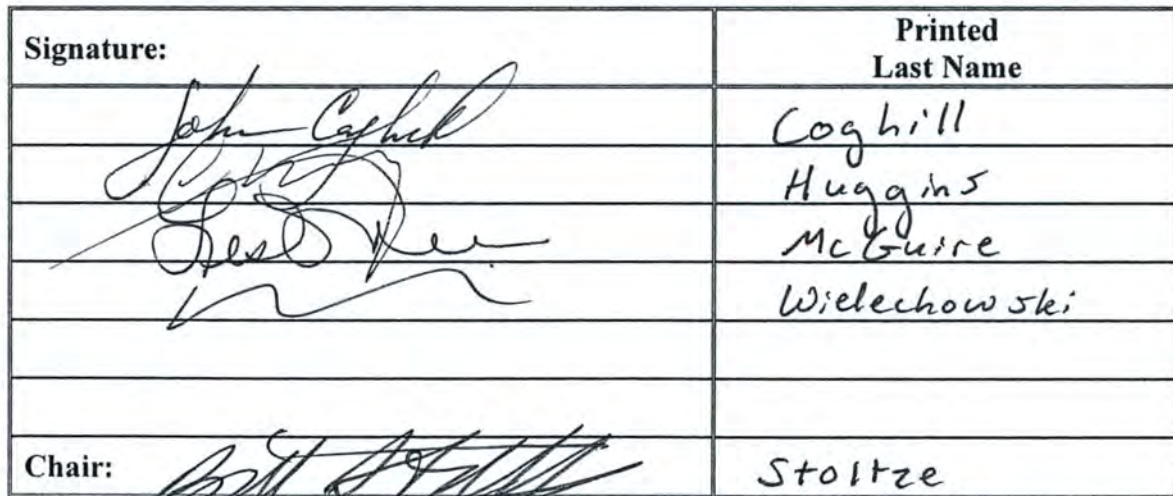 Signature:
Printed
Last Name
John Coghill
Coghill
Huggins
McGuire
Wielechowski
Chair:
Stoltze